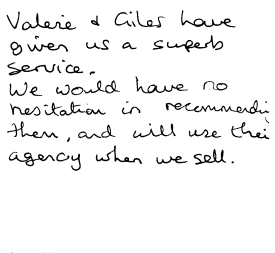 Valerie & Giles have
given us a superb
service.
We would have no
hesitation in recommendi
them, and will use thei
agency when we sell.